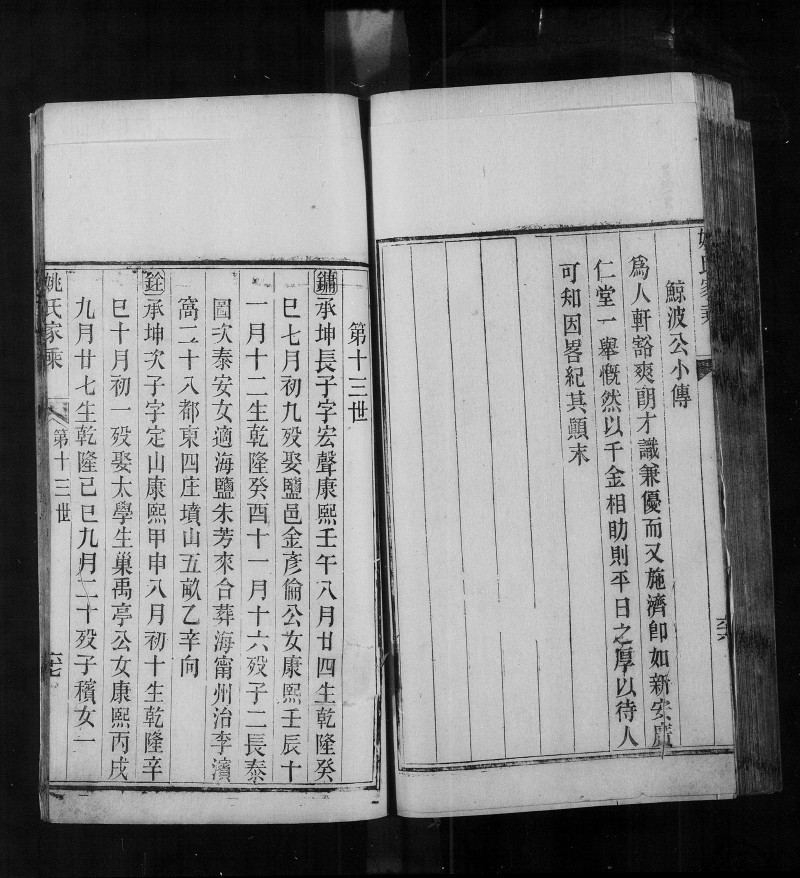 姚氏家乘
鯨波公小傳
爲人軒豁爽朗才識兼優而又施濟卽如新安廣
仁堂一舉慨然以千金相助則平日之厚以待人
可知因畧紀其顚末
第十三世
鏞承坤長子字宏聲康熙壬午八月廿四生乾隆癸
巳七月初九歿娶鹽邑金彥倫公女康熙壬辰十
一月十二生乾隆癸酉十一月十六歿子二長泰
圖次泰安女適海鹽朱芳來合葬海甯州治李濱
窩二十八都東四庄墳山五畝乙辛向
銓承坤次子字定山康熙甲申八月初十生乾隆辛
巳十月初一歿娶太學生巢禹亭公女康熙丙戌
九月廿七生乾隆己巳九月二十歿子稽女一
姚氏家乘
第十三世